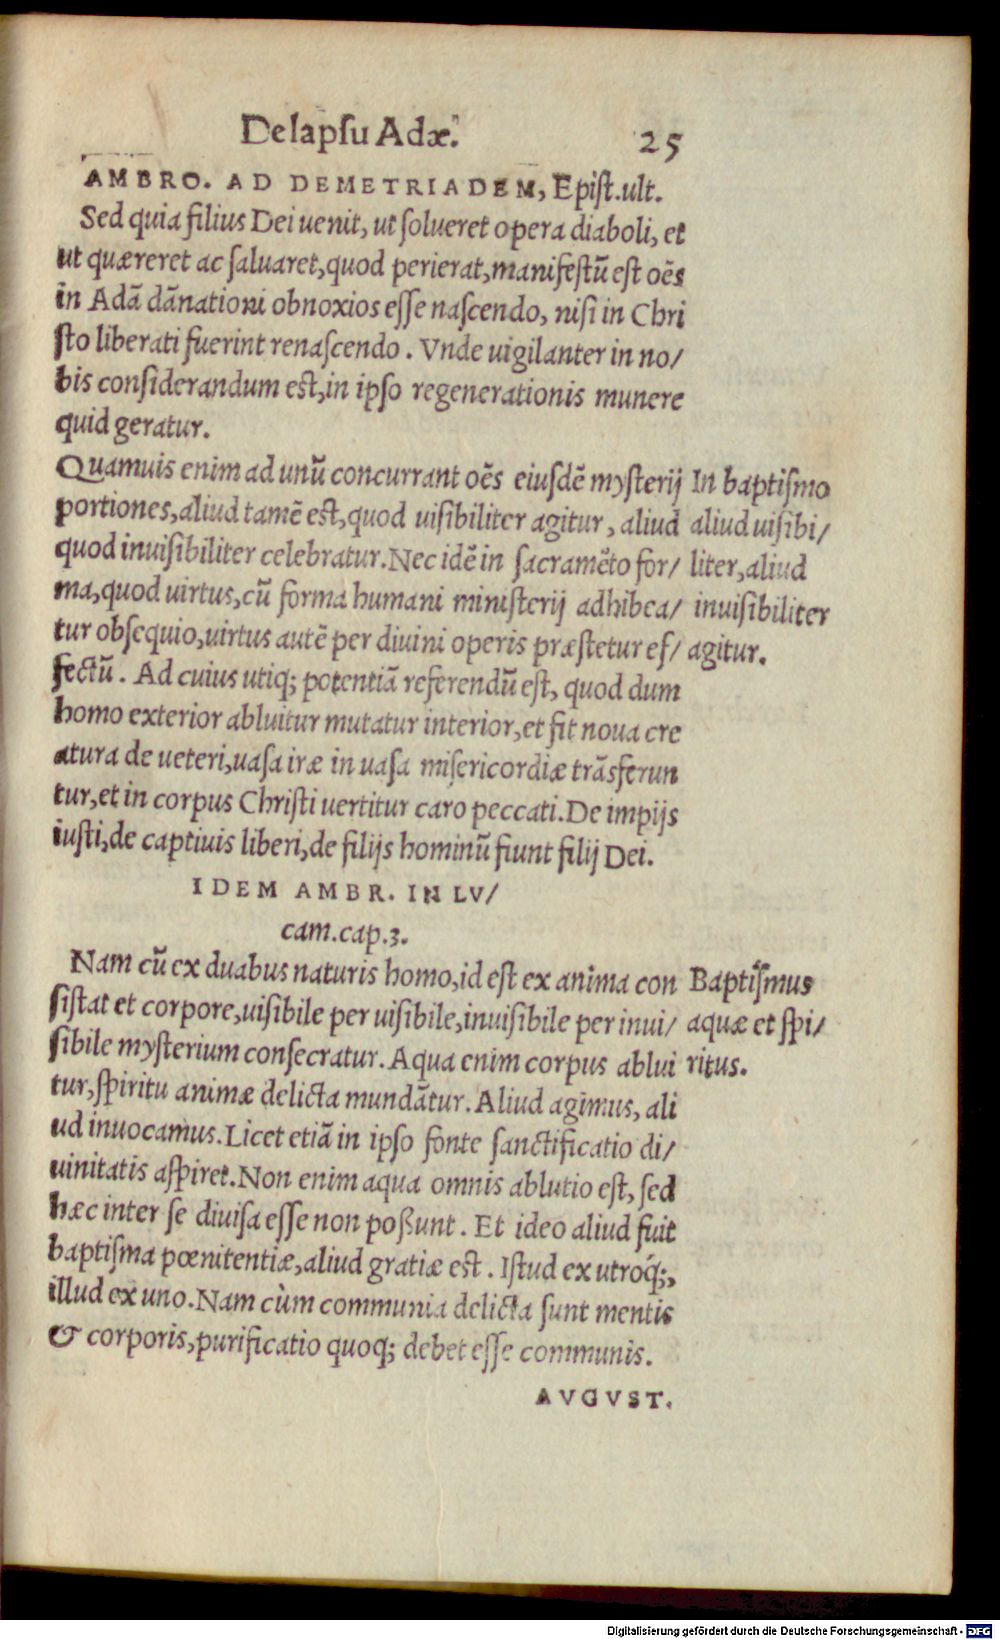 De lapſu Adæ. 25
AMBRO. AD DEMETRIADEM, Epiſt.ult.
Sed quia filius Dei uenit, ut ſolueret opera diaboli, et
ut quæreret ac ſaluaret,quod perierat,manifeſtũ est oẽs
in Adã dãnationi obnoxios eſſe naſcendo, niſi in Chri
ſto liberati fuerint renaſcendo. Vnde uigilanter in no/
bis conſiderandum est,in ipſo regenerationis munere
quid geratur.
Quamuis enim ad unũ concurrant oẽs eiuſdẽ myſterij
portiones,aliud tamẽ est,quod uiſibiliter agitur, aliud
quod inuiſibiliter celebratur.Nec idẽ in ſacramẽto for/
ma,quod uirtus,cũ forma humani miniſterij adhibea/
tur obſequio,uirtus autẽ per diuini operis præſtetur ef/
fectũ. Ad cuius utiq; potentiã referendũ eſt, quod dum
homo exterior abluitur mutatur interior,et fit noua cre
atura de ueteri,uaſa iræ in uaſa miſericordiæ trãsferun
tur,et in corpus Chriſti uertitur caro peccati.De impijs
iuſti,de captiuis liberi,de filijs hominũ fiunt filij Dei.
In baptiſmo
aliud uiſibi/
liter,aliud
inuiſibiliter
agitur.
IDEM AMBR. IN LV/
cam.cap.3.
Nam cũ ex duabus naturis homo,id eſt ex anima con
ſiſtat et corpore,uiſibile per uiſibile,inuiſibile per inui/
ſibile myſterium conſecratur. Aqua enim corpus ablui
tur,ſpiritu animæ delicta mundãtur. Aliud agimus, ali
ud inuocamus.Licet etiã in ipſo fonte ſanctificatio di/
uinitatis aſpiret.Non enim aqua omnis ablutio eſt, ſed
hæc inter ſe diuiſa eſſe non poßunt. Et ideo aliud fuit
baptiſma pœnitentiæ,aliud gratiæ est. Iſtud ex utroq́;,
illud ex uno.Nam cùm communia delicta ſunt mentis
& corporis,purificatio quoq; debet eſſe communis.
Baptiſmus
aquæ et ſpi/
ritus.
AVGVST.
Digitalisierung gefördert durch die Deutsche Forschungsgemeinschaft - DFG